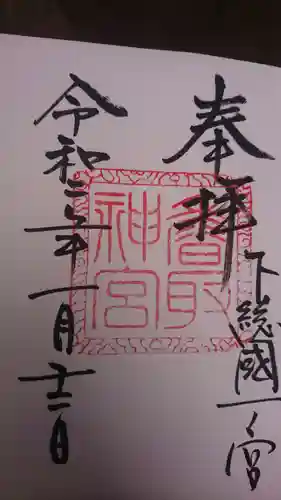 奉拝
下総國一ノ宮
香取神宮
令和二年一月十二日